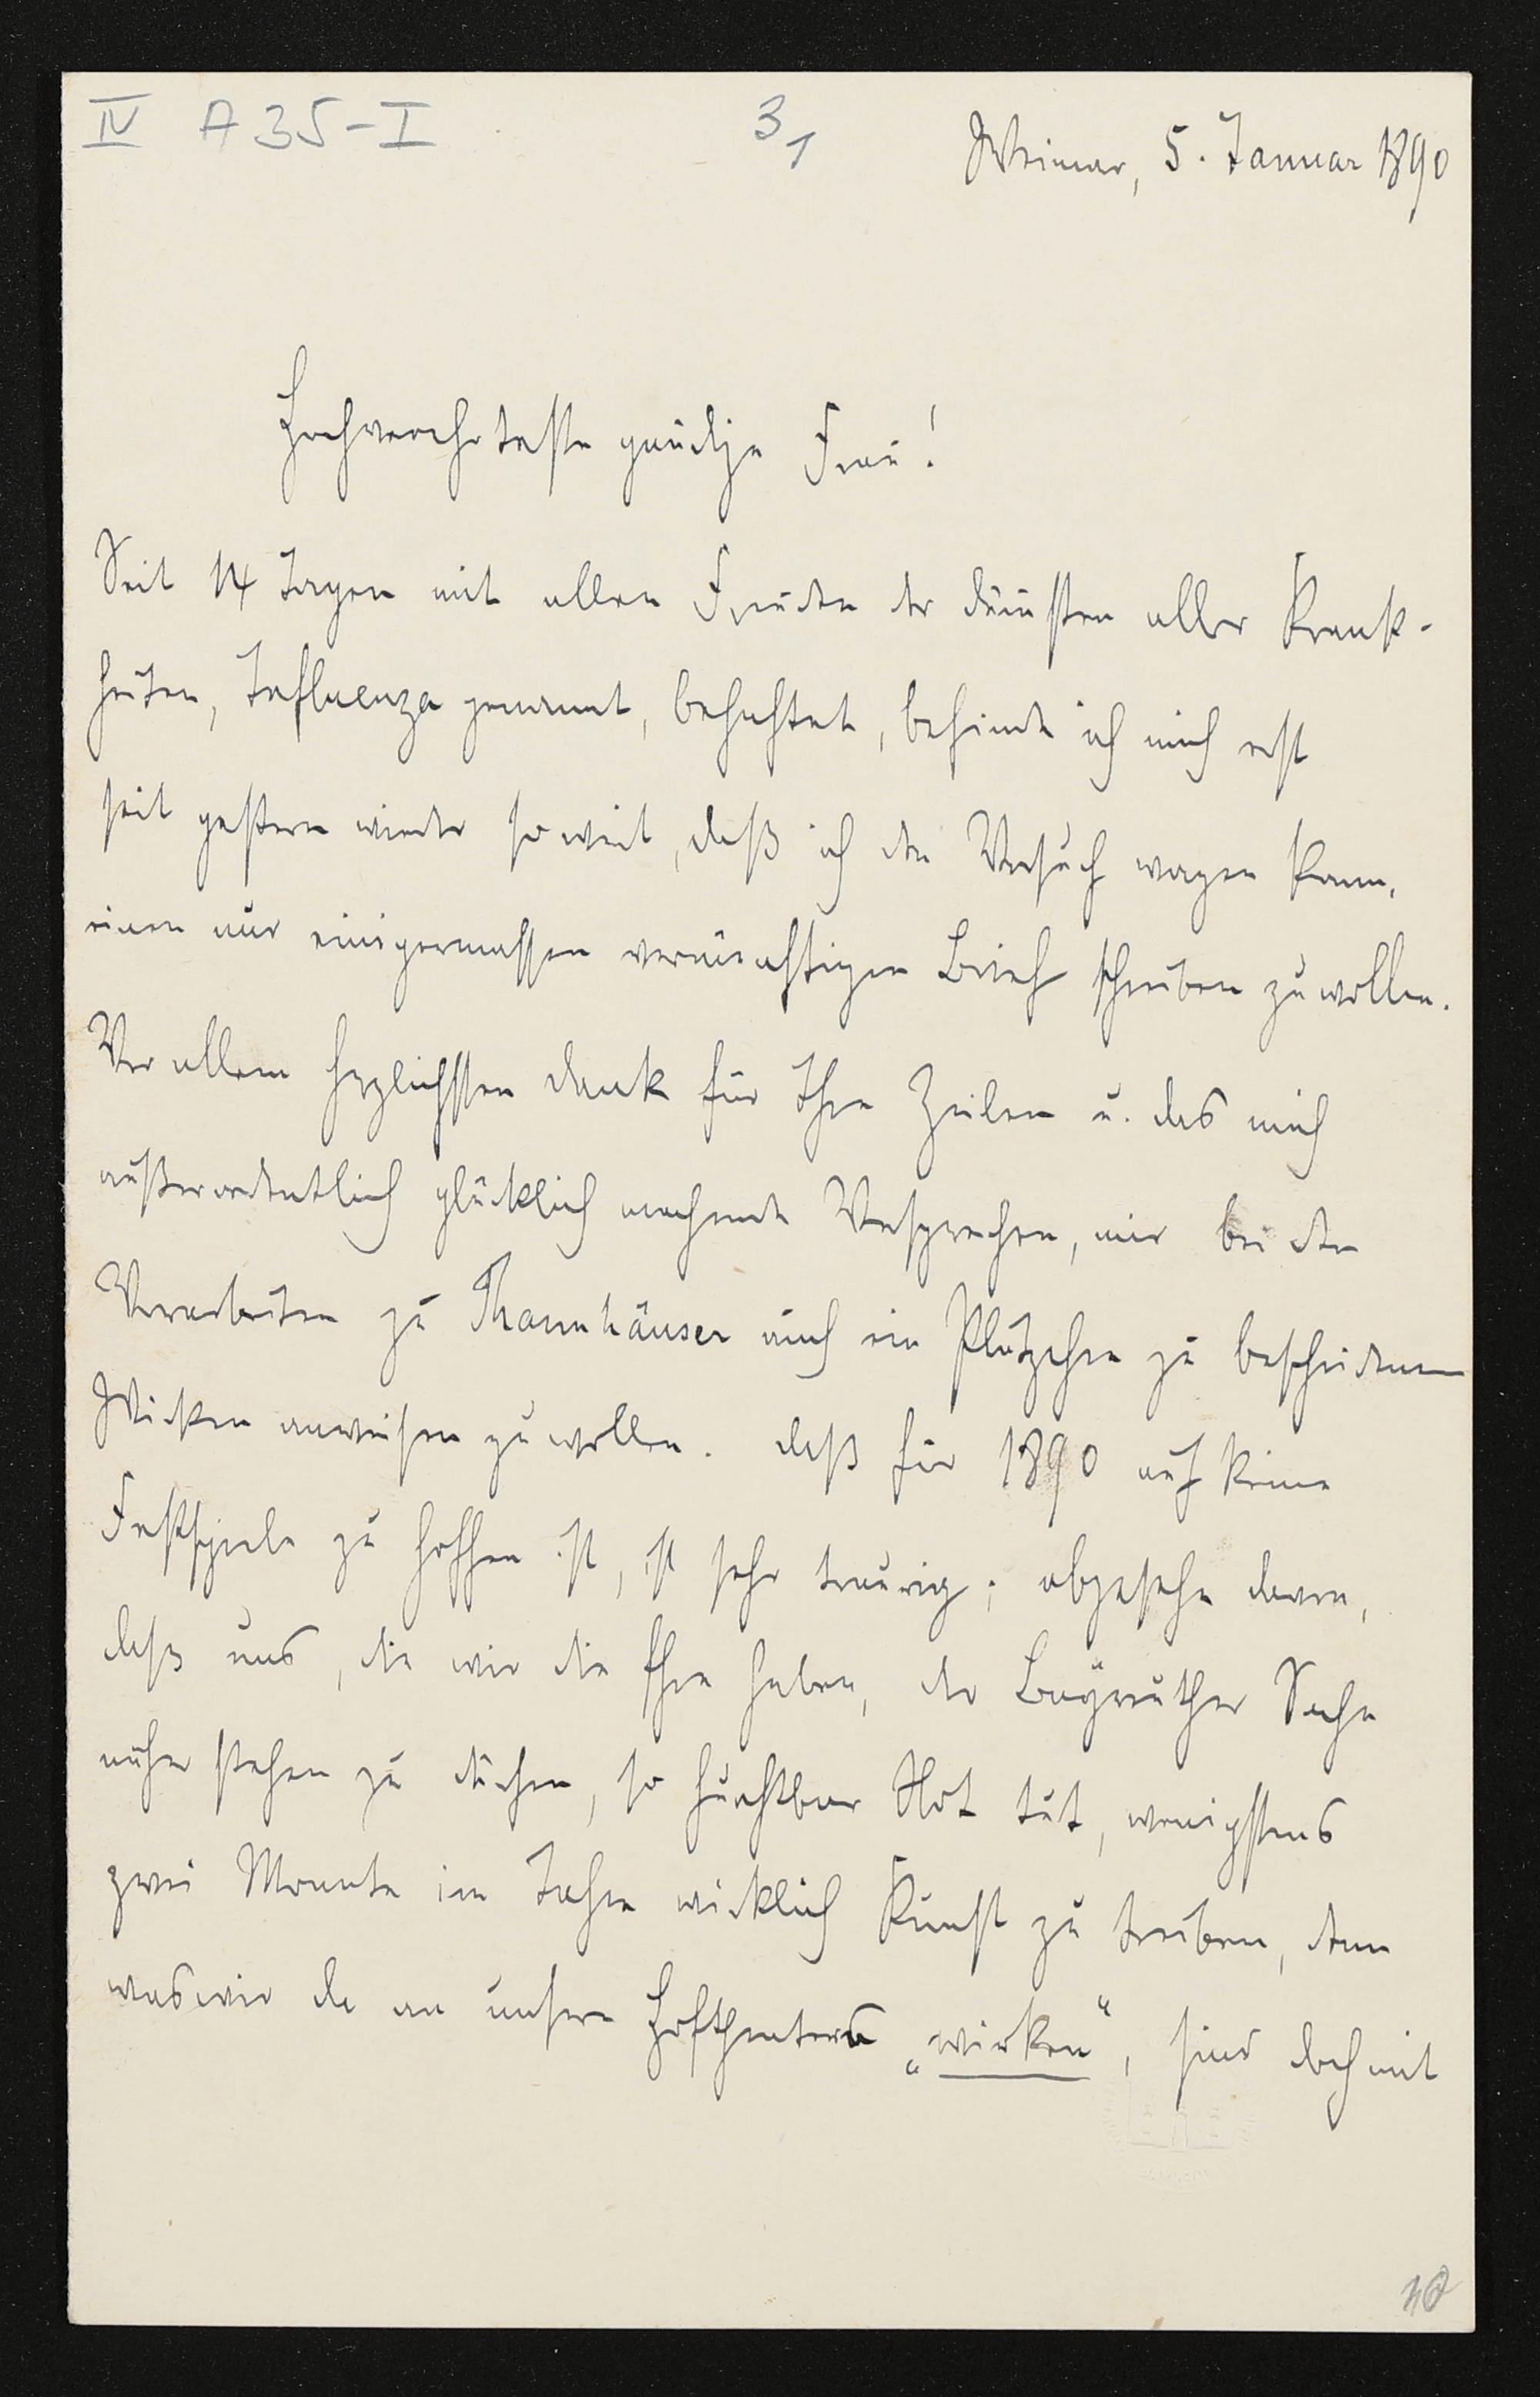 IV A 35-I
3
1
Weimar, 5. Januar 1890
Hochverehrteste gnädige Frau!
Seit 14 Tagen mit allen Freuden der dümmsten aller Krank-
heiten, Influenza genannt, behaftet, befinde ich mich erst
seit gestern wieder so weit, daß ich den Versuch wagen kann,
einen nur einigermassen vernünftigen Brief schreiben zu wollen.
Vor allem herzlichsten Dank für Ihre Zeilen u. das mich
außerordentlich glücklich machende Versprechen, mir bei den
Vorarbeiten zu Thannhäuser auch ein Plätzchen zu bescheidenem
Wirken anweisen zu wollen. Daß für 1890 auf keine
Festspiele zu hoffen ist, ist sehr traurig; abgesehen davon,
daß uns, die wir die Ehre haben, der Bayreuther Sache
näher stehen zu dürfen, so furchtbar Not tut, wenigstens
zwei Monate im Jahre wirklich Kunst zu treiben, denn
was wir da an unseren Hoftheatern „wirken“, sind doch mit